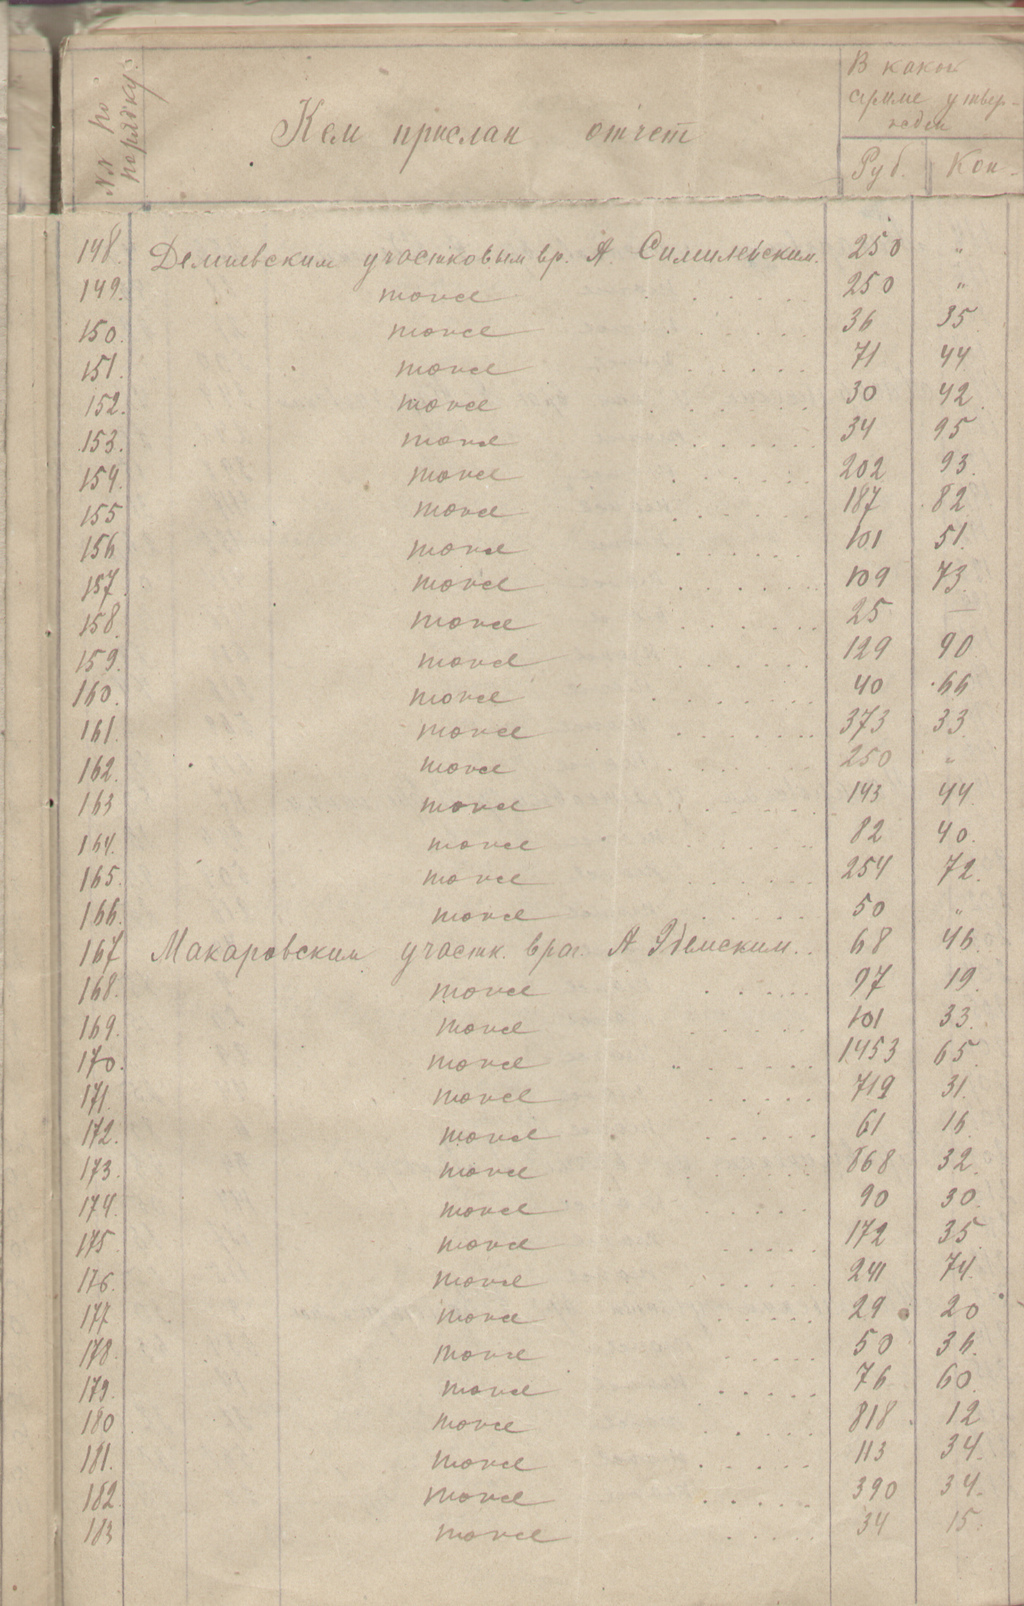 №№ по порядку.
Кем прислан отчет
В какой
сумме утвер-
ждён
Руб. Коп.
148. Демиевским участковым вр. А. Симилейским. 250 "
149. тоже 250 "
150. тоже 36 35
151. тоже 71 44
152. тоже 30 42
153. тоже 34 95
154. тоже 202 93
155 тоже 187 82
156 тоже 101 51
157. тоже 109 73
158. тоже 25 —
159. тоже 129 90
160. тоже 40 66
161. тоже 373 33
162. тоже 250 "
163 тоже 143 44
164. тоже 82 40.
165. тоже 254 72.
166. тоже 50 "
167 Макаровским участк. врач. А. 68 46
168. тоже 97 19.
169. тоже 101 33.
170. тоже 1453 65
171. тоже 719 31.
172. тоже 61 16
173. тоже 868 32.
174. тоже 90 30
175. тоже 172 35
176. тоже 241 74
177 тоже 29 20
178. тоже 50 36.
179. тоже 76 60
180 тоже 818 12
181. тоже 113 34.
182 тоже 390 34.
183 тоже 34 15.